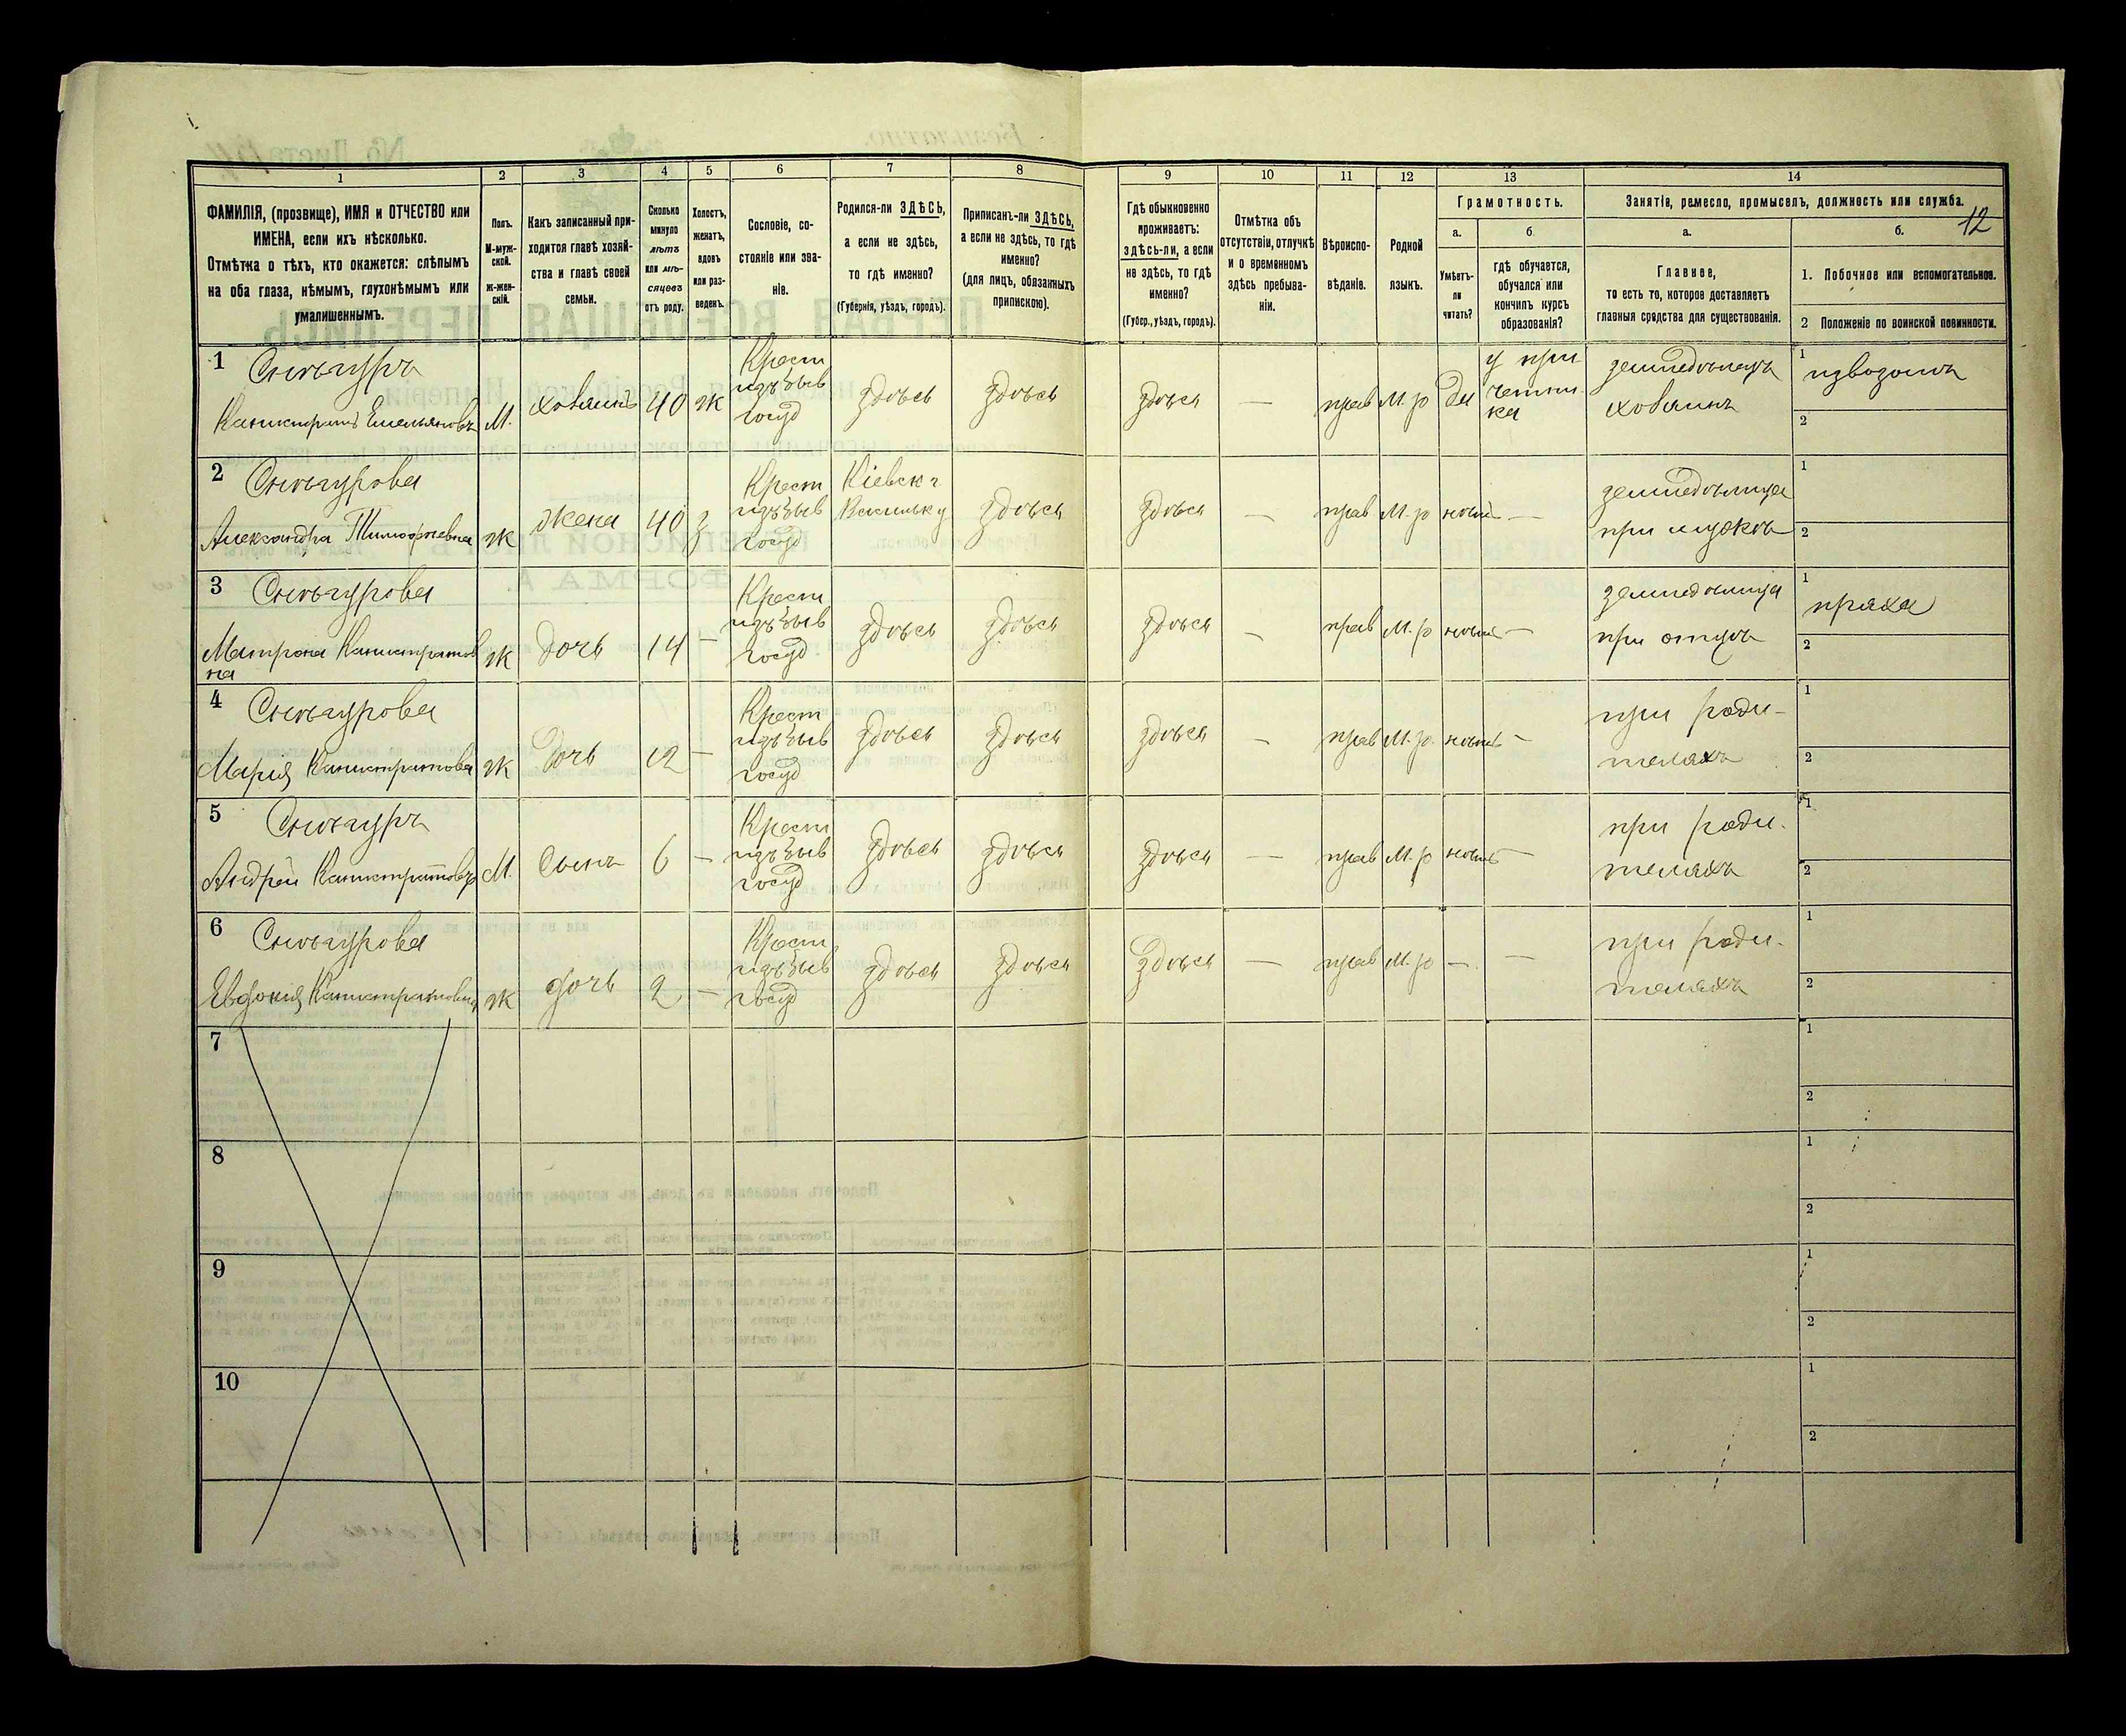 12
1
2
3
4
5
6
7
8
9
10
11
12
13
14
ФАМИЛІЯ, (прозвище), ИМЯ и ОТЧЕСТВО или
ИМЕНА, если ихъ нѣсколько.
Отмѣтка о тѣхъ, кто окажется: слѣпымъ
на оба глаза, нѣмымъ, глухонѣмымъ или
умалишеннымъ.
Полъ.
М-муж-
ской.
ж-жен-
скій.
Какъ записанный при-
ходится главѣ хозяй-
ства и главѣ своей
семьи.
Сколько
минуло
лѣтъ
или мѣ-
сяцевъ
отъ роду.
Холостъ,
женатъ,
вдовъ
или раз-
веденъ.
Сословіе, со-
стояніе или зва-
ніе.
Родился-ли ЗДѢСЬ,
а если не здѣсь,
то гдѣ именно?
(Губернія, уѣздъ, городъ).
Приписанъ-ли ЗДѢСЬ,
а если не здѣсь, то гдѣ
именно?
(для лицъ, обязанныхъ
припискою).
Гдѣ обыкновенно
проживаетъ:
здѣсь-ли, а если
не здѣсь, то гдѣ
именно?
(Губер., уѣздъ, городъ).
Отмѣтка объ
отсутствіи, отлучкѣ
и о временномъ
здѣсь пребыва-
ніи.
Вѣроиспо-
вѣданіе.
Родной
языкъ.
Грамотность.
а.
Умѣетъ-
ли
читать?
б.
гдѣ обучается,
обучался или
кончилъ курсъ
образованія?
Занятіе, ремесло, промыселъ, должность или служба.
а.
Главное,
то есть то, которое доставляетъ
главныя средства для существованія.
б.
1. Побочное или вспомогательное.
2 Положеніе по воинской повинности.
1
Снѣгуръ
Каллистратъ Емельяновъ
М.
хозяинъ
40
ж
Крест
изъ быв
госуд
здѣсь
здѣсь
здѣсь
—
прав
М. р
да
у при
четни
ка
земледѣлецъ
хозяинъ
1
извозомъ
2
2
Снѣгурова
Александра Тимофѣевна
ж
жена
40
з
Крест
изъ быв
госуд
Кіевск г
Васильк у
здѣсь
здѣсь
—
прав
М. р
нѣтъ
—
земледѣлица
при мужѣ
1
2
3
Снѣгурова
Матрона Каллистратов
на
ж
дочь
14
—
Крест
изъ быв
госуд
здѣсь
здѣсь
здѣсь
—
прав
М. р
нѣтъ
—
земледѣлица
при отцѣ
1
пряха
2
4
Снѣгурова
Марія Каллистратова
ж
дочь
12
—
Крест
изъ быв
госуд
здѣсь
здѣсь
здѣсь
—
прав
М. р.
нѣтъ
—
при роди-
теляхъ
1
2
5
Снѣгуръ
Андрей Каллистратовъ
М.
Сынъ
6
—
Крест
изъ быв
госуд
здѣсь
здѣсь
здѣсь
—
прав
М. р
нѣтъ
—
при роди-
теляхъ
1
2
6
Снѣгурова
Евдокія Каллистратовна
ж
дочь
2
—
Крест
изъ быв
госуд
здѣсь
здѣсь
здѣсь
—
прав
М. р
—
—
при роди-
теляхъ
1
2
7
1
2
8
1
2
9
1
2
10
1
2